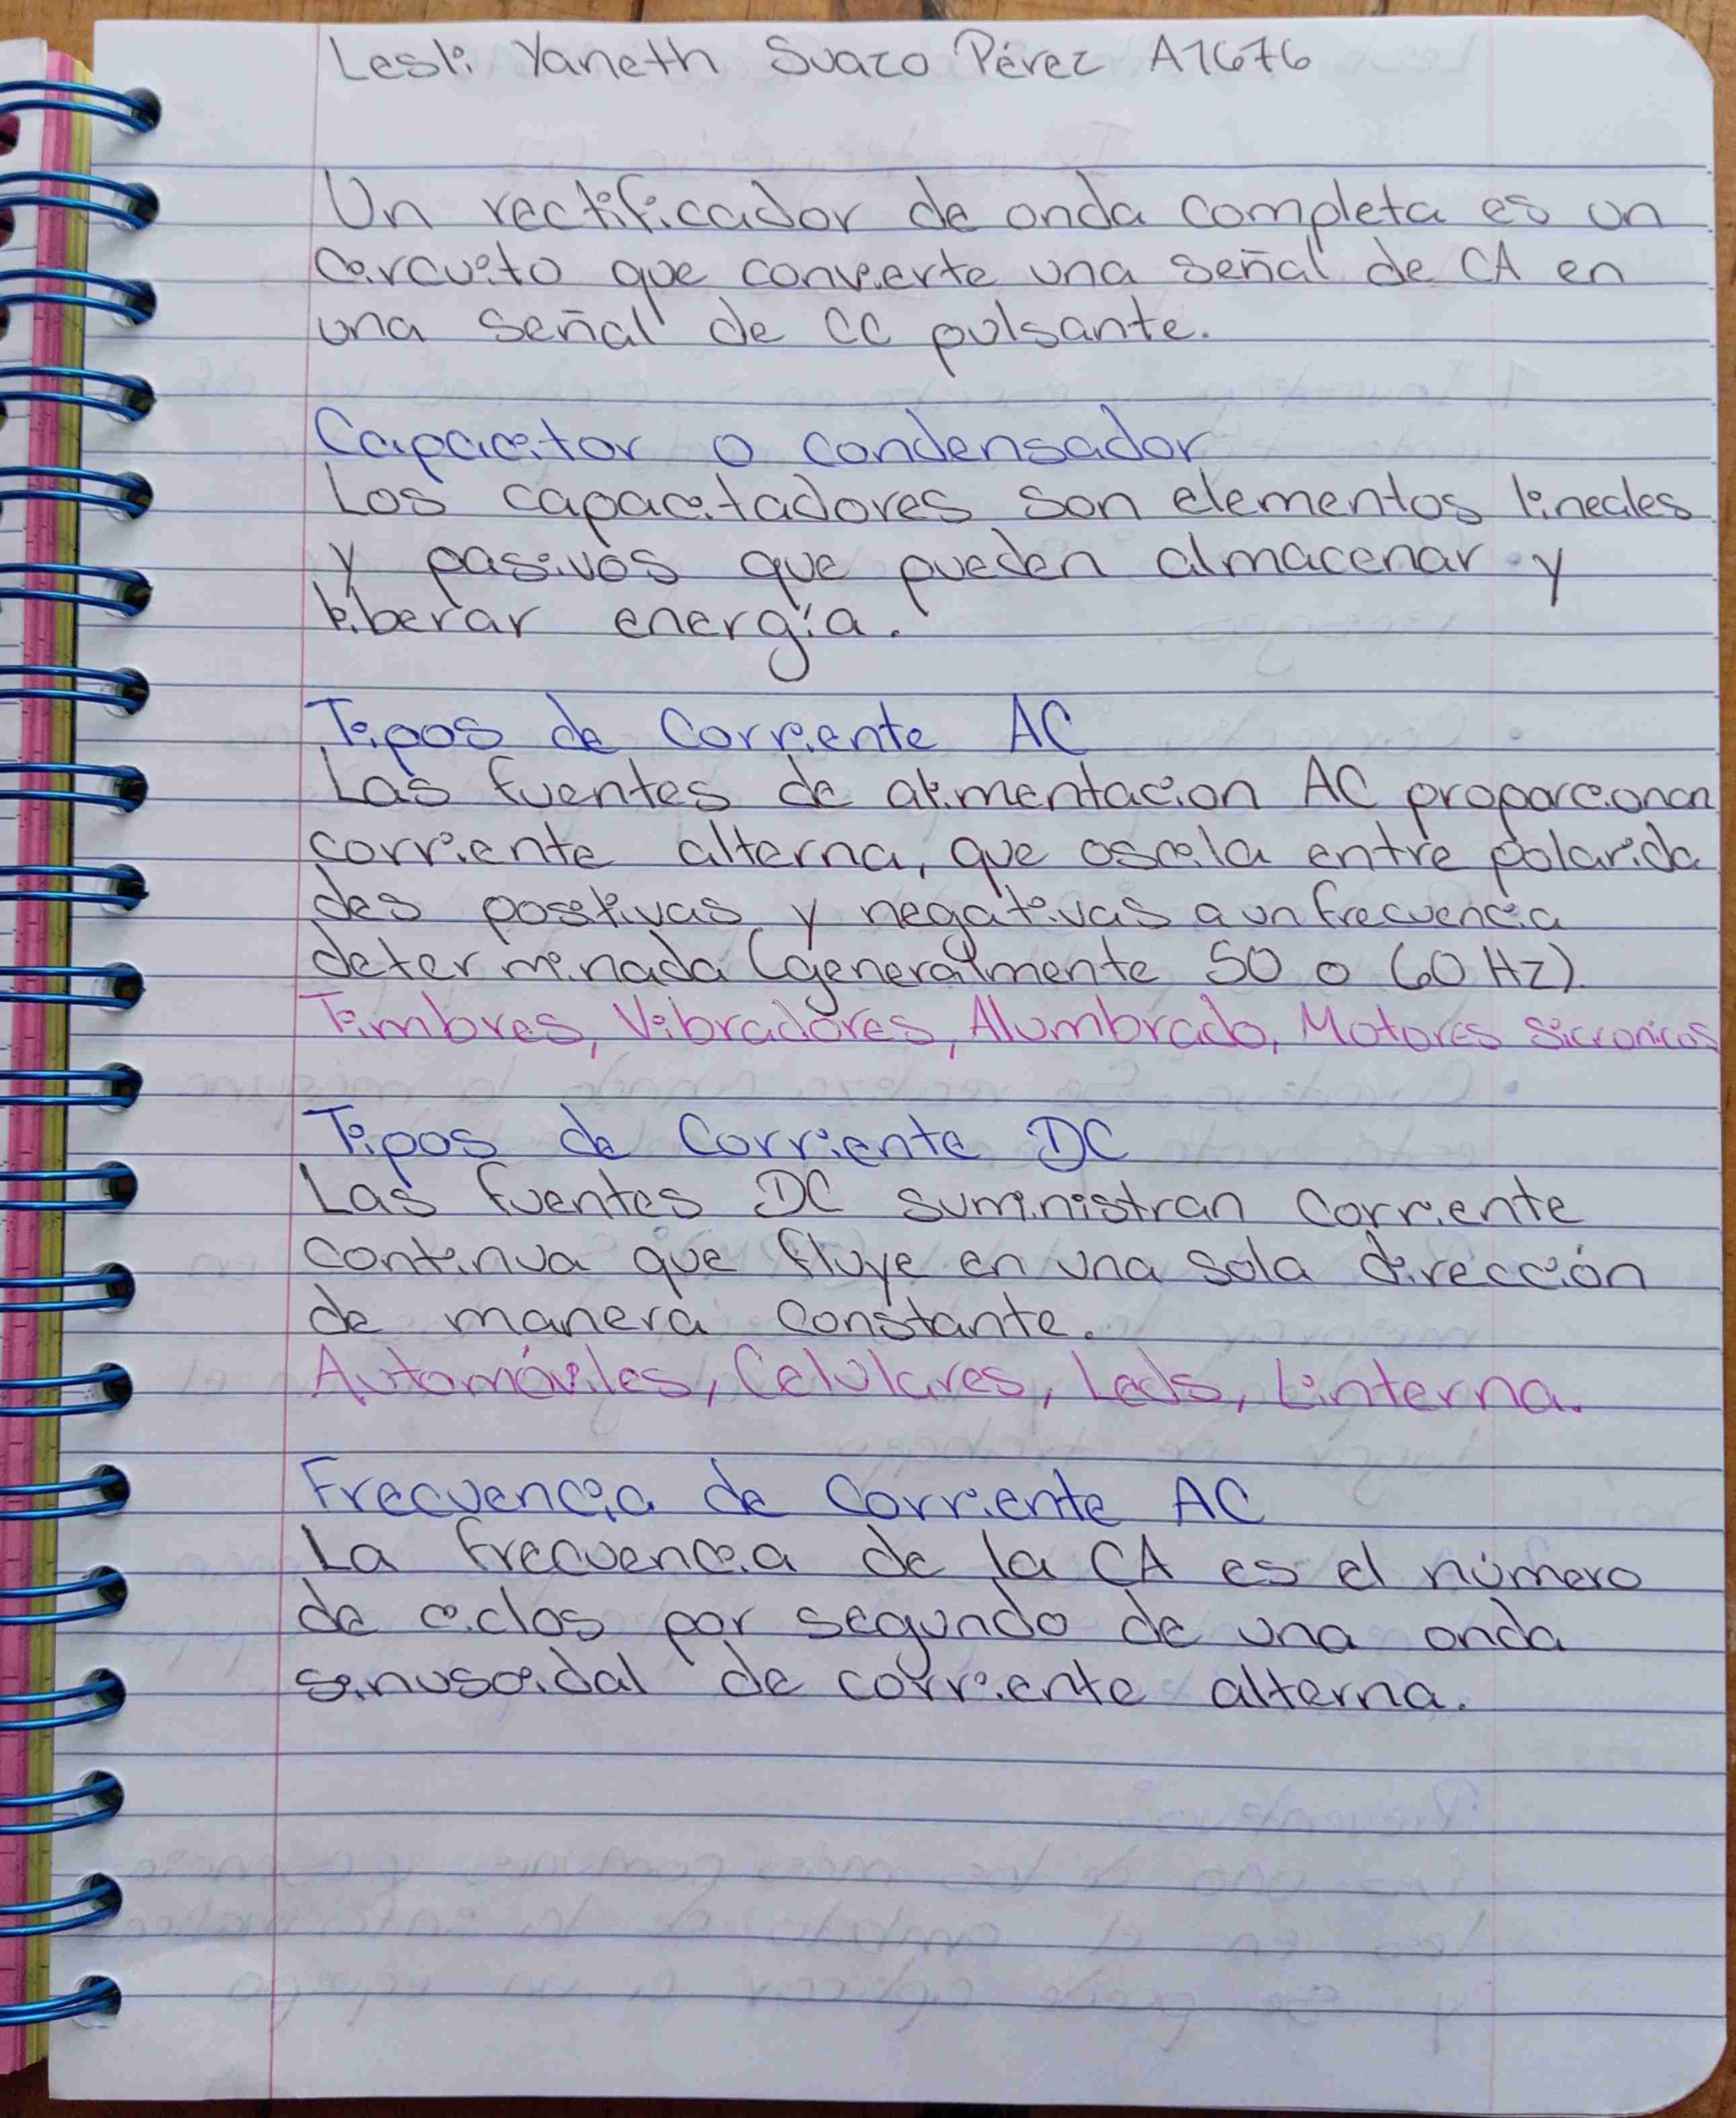 Lesli Yaneth Suazo Pérez A1676
Un rectificador de onda completa es un
circuito que convierte una señal de CA en
una señal de CC pulsante.
Capacitor o condensador
Los capacitadores son elementos lineales
y pasivos que pueden almacenar y
liberar energía.
Tipos de Corriente AC
Las fuentes de alimentacion AC proporcionan
corriente alterna, que oscila entre polarida
des positivas y negativas a un frecuencia
determinada (generalmente 50 o 60 Hz)
Timbres, Vibradores, Alumbrado, Motores Sicronicos
Tipos de Corriente DC
Las fuentes DC suministran corriente
continua que fluye en una sola dirección
de manera constante.
Automóviles, Celulares, Leds, Linterna.
Frecuencia de Corriente AC
La frecuencia de la CA es el número
de ciclos por segundo de una onda
sinusoidal de corriente alterna.